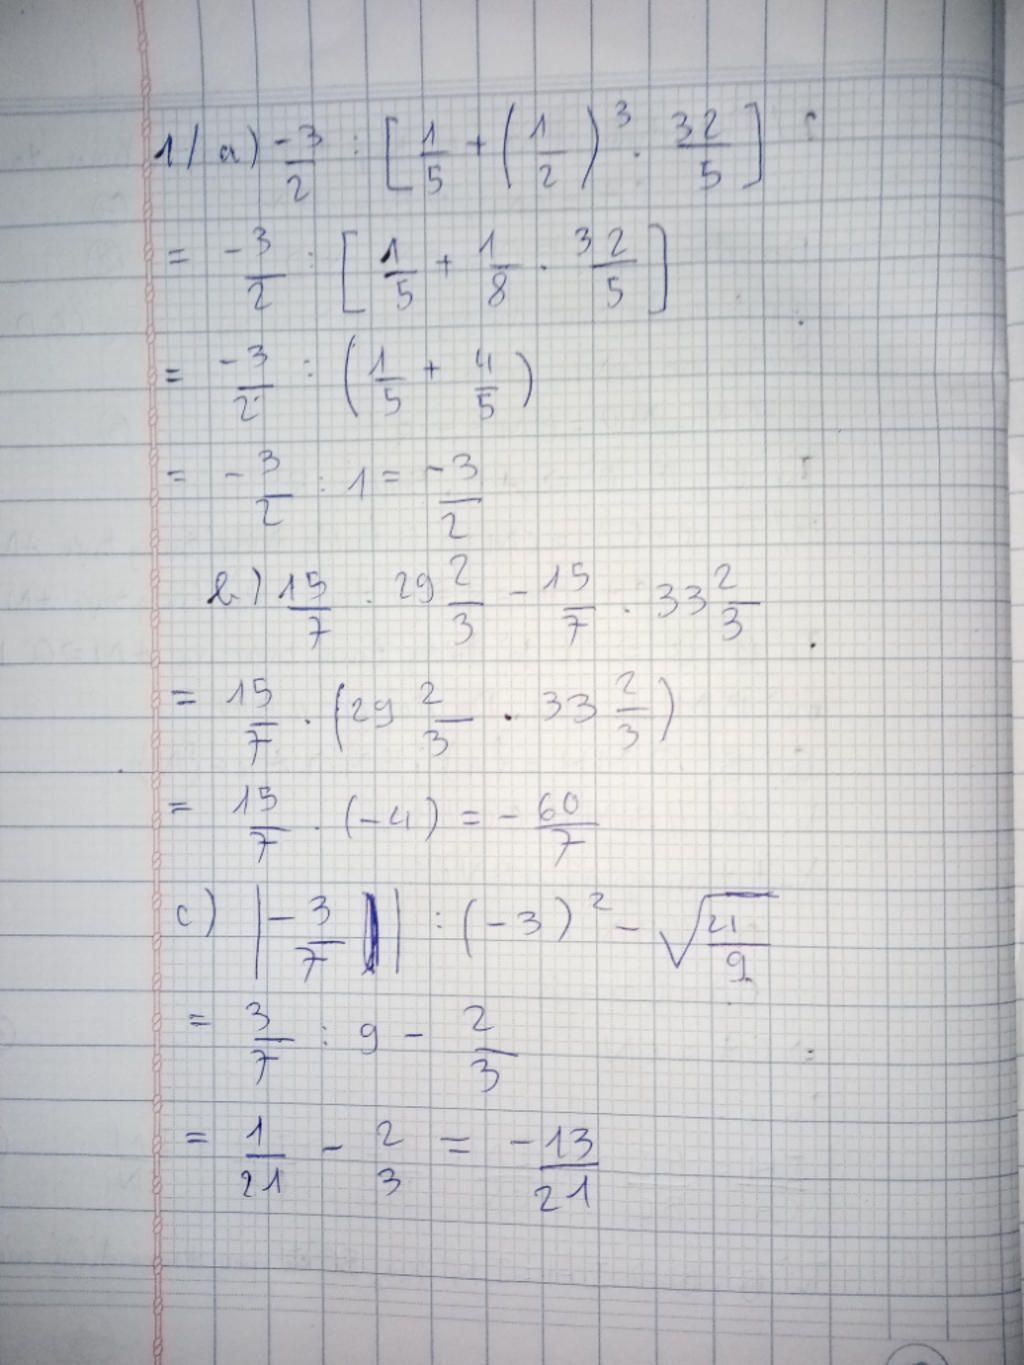 1/ a) -3/2 : [1/5 + (1/2)³ . 32/5]
= -3/2 : [1/5 + 1/8 . 32/5]
= -3/2 : (1/5 + 4/5)
= -3/2 : 1 = -3/2
b) 15/7 . 29 2/3 - 15/7 . 33 2/3
= 15/7 . (29 2/3 . 33 2/3)
= 15/7 . (-4) = - 60/7
c) |-3/7| : (-3)² - √(21/9)
= 3/7 : 9 - 2/3
= 1/21 - 2/3 = -13/21